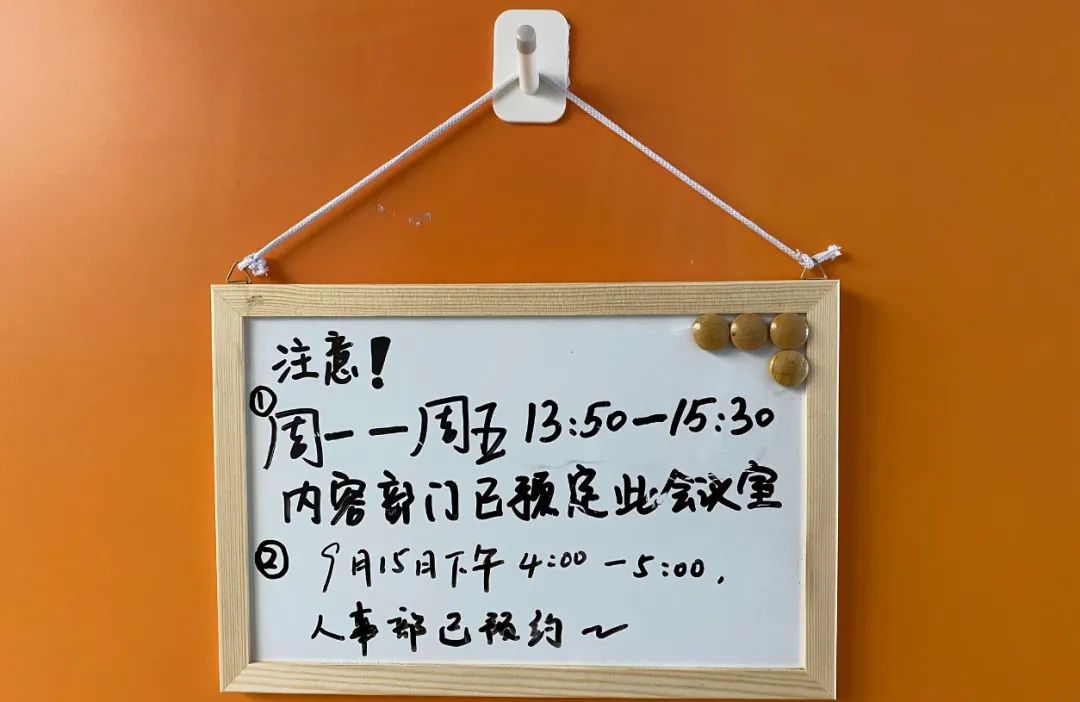 注意！
①周一一周五 13:50—15:30
内容部门已预定此会议室
② 9月15日下午 4:00—5:00，
人事部已预约～